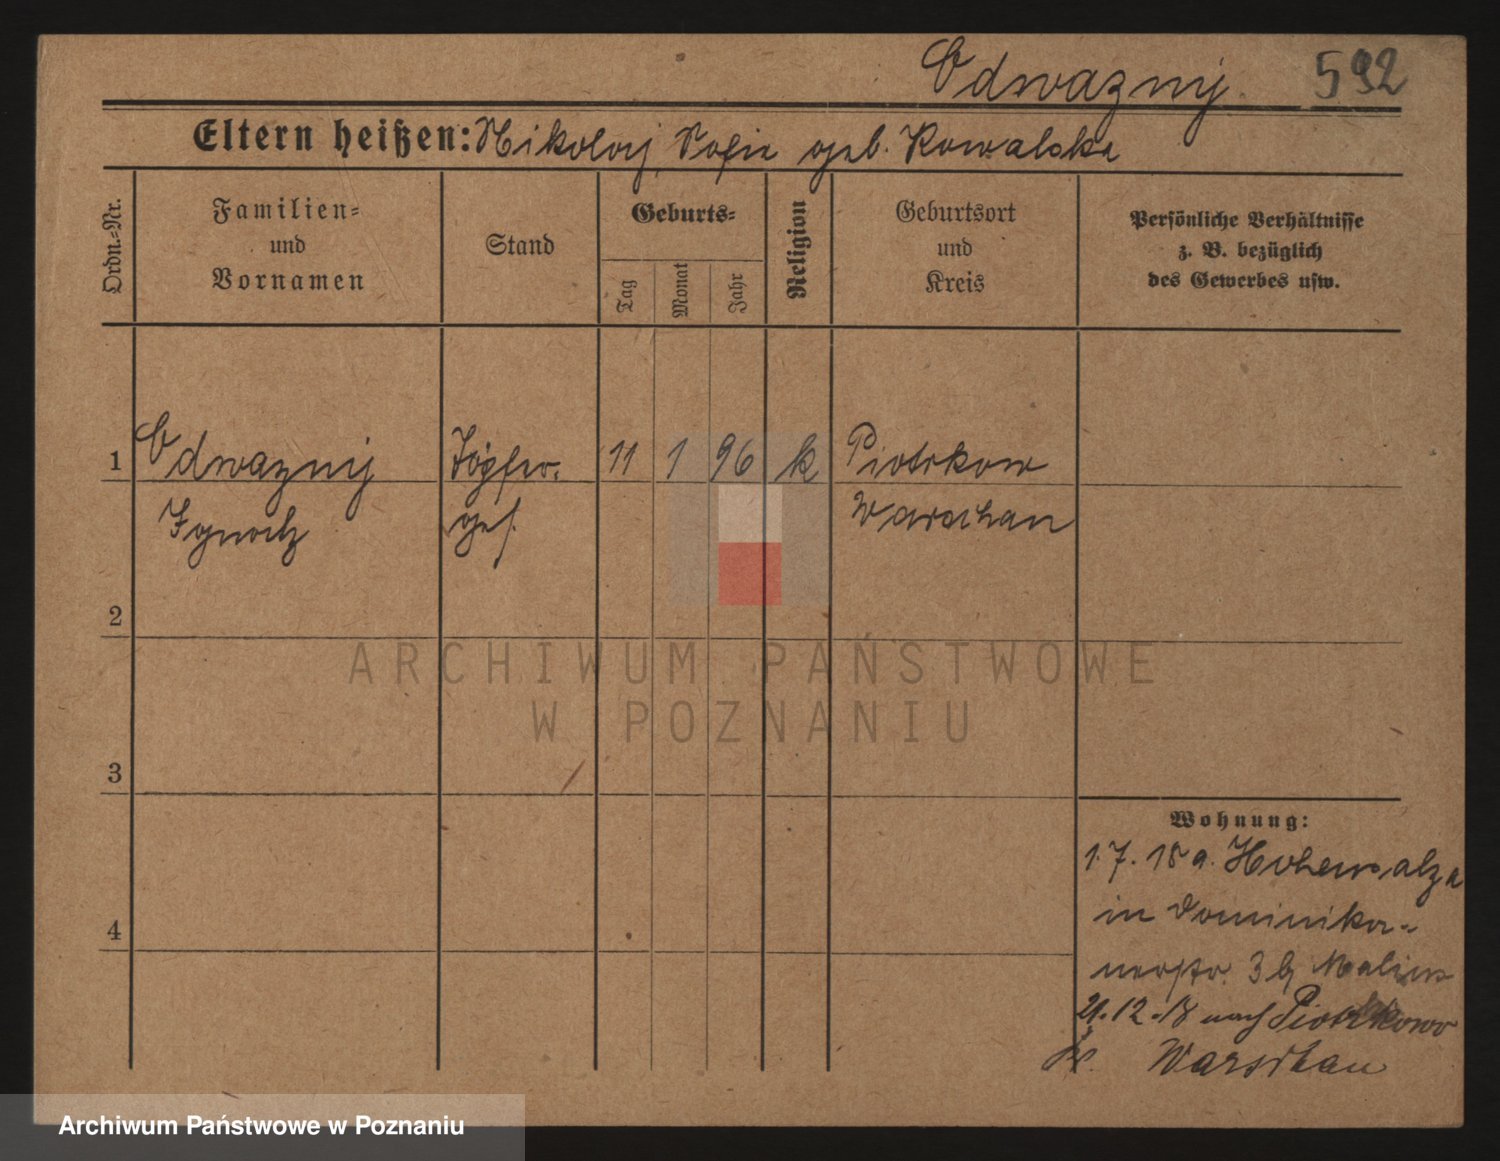 Odwaznij. 592
Eltern heißen: Nikolaj, Sofie geb. Kowalska
Ordn.-Nr.
Familien-
und
Vornamen
Stand
Geburts-
Tag
Monat
Jahr
Religion
Geburtsort
und
Kreis
Persönliche Verhältnisse
z. B. bezüglich
des Gewerbes usw.
1 Odwaznij 11 1 96 k Piotrkow
Ignatz ges. Warschau
2
3
4
ARCHIWUM PAŃSTWOWE
W POZNANIU
Wohnung:
1.7.18 a. Hohensalza
in Dominika-
nerstr. 3 b/ Malins
21.12.18 nach Piotrkowo
Kr. Warschau
Archiwum Państwowe w Poznaniu